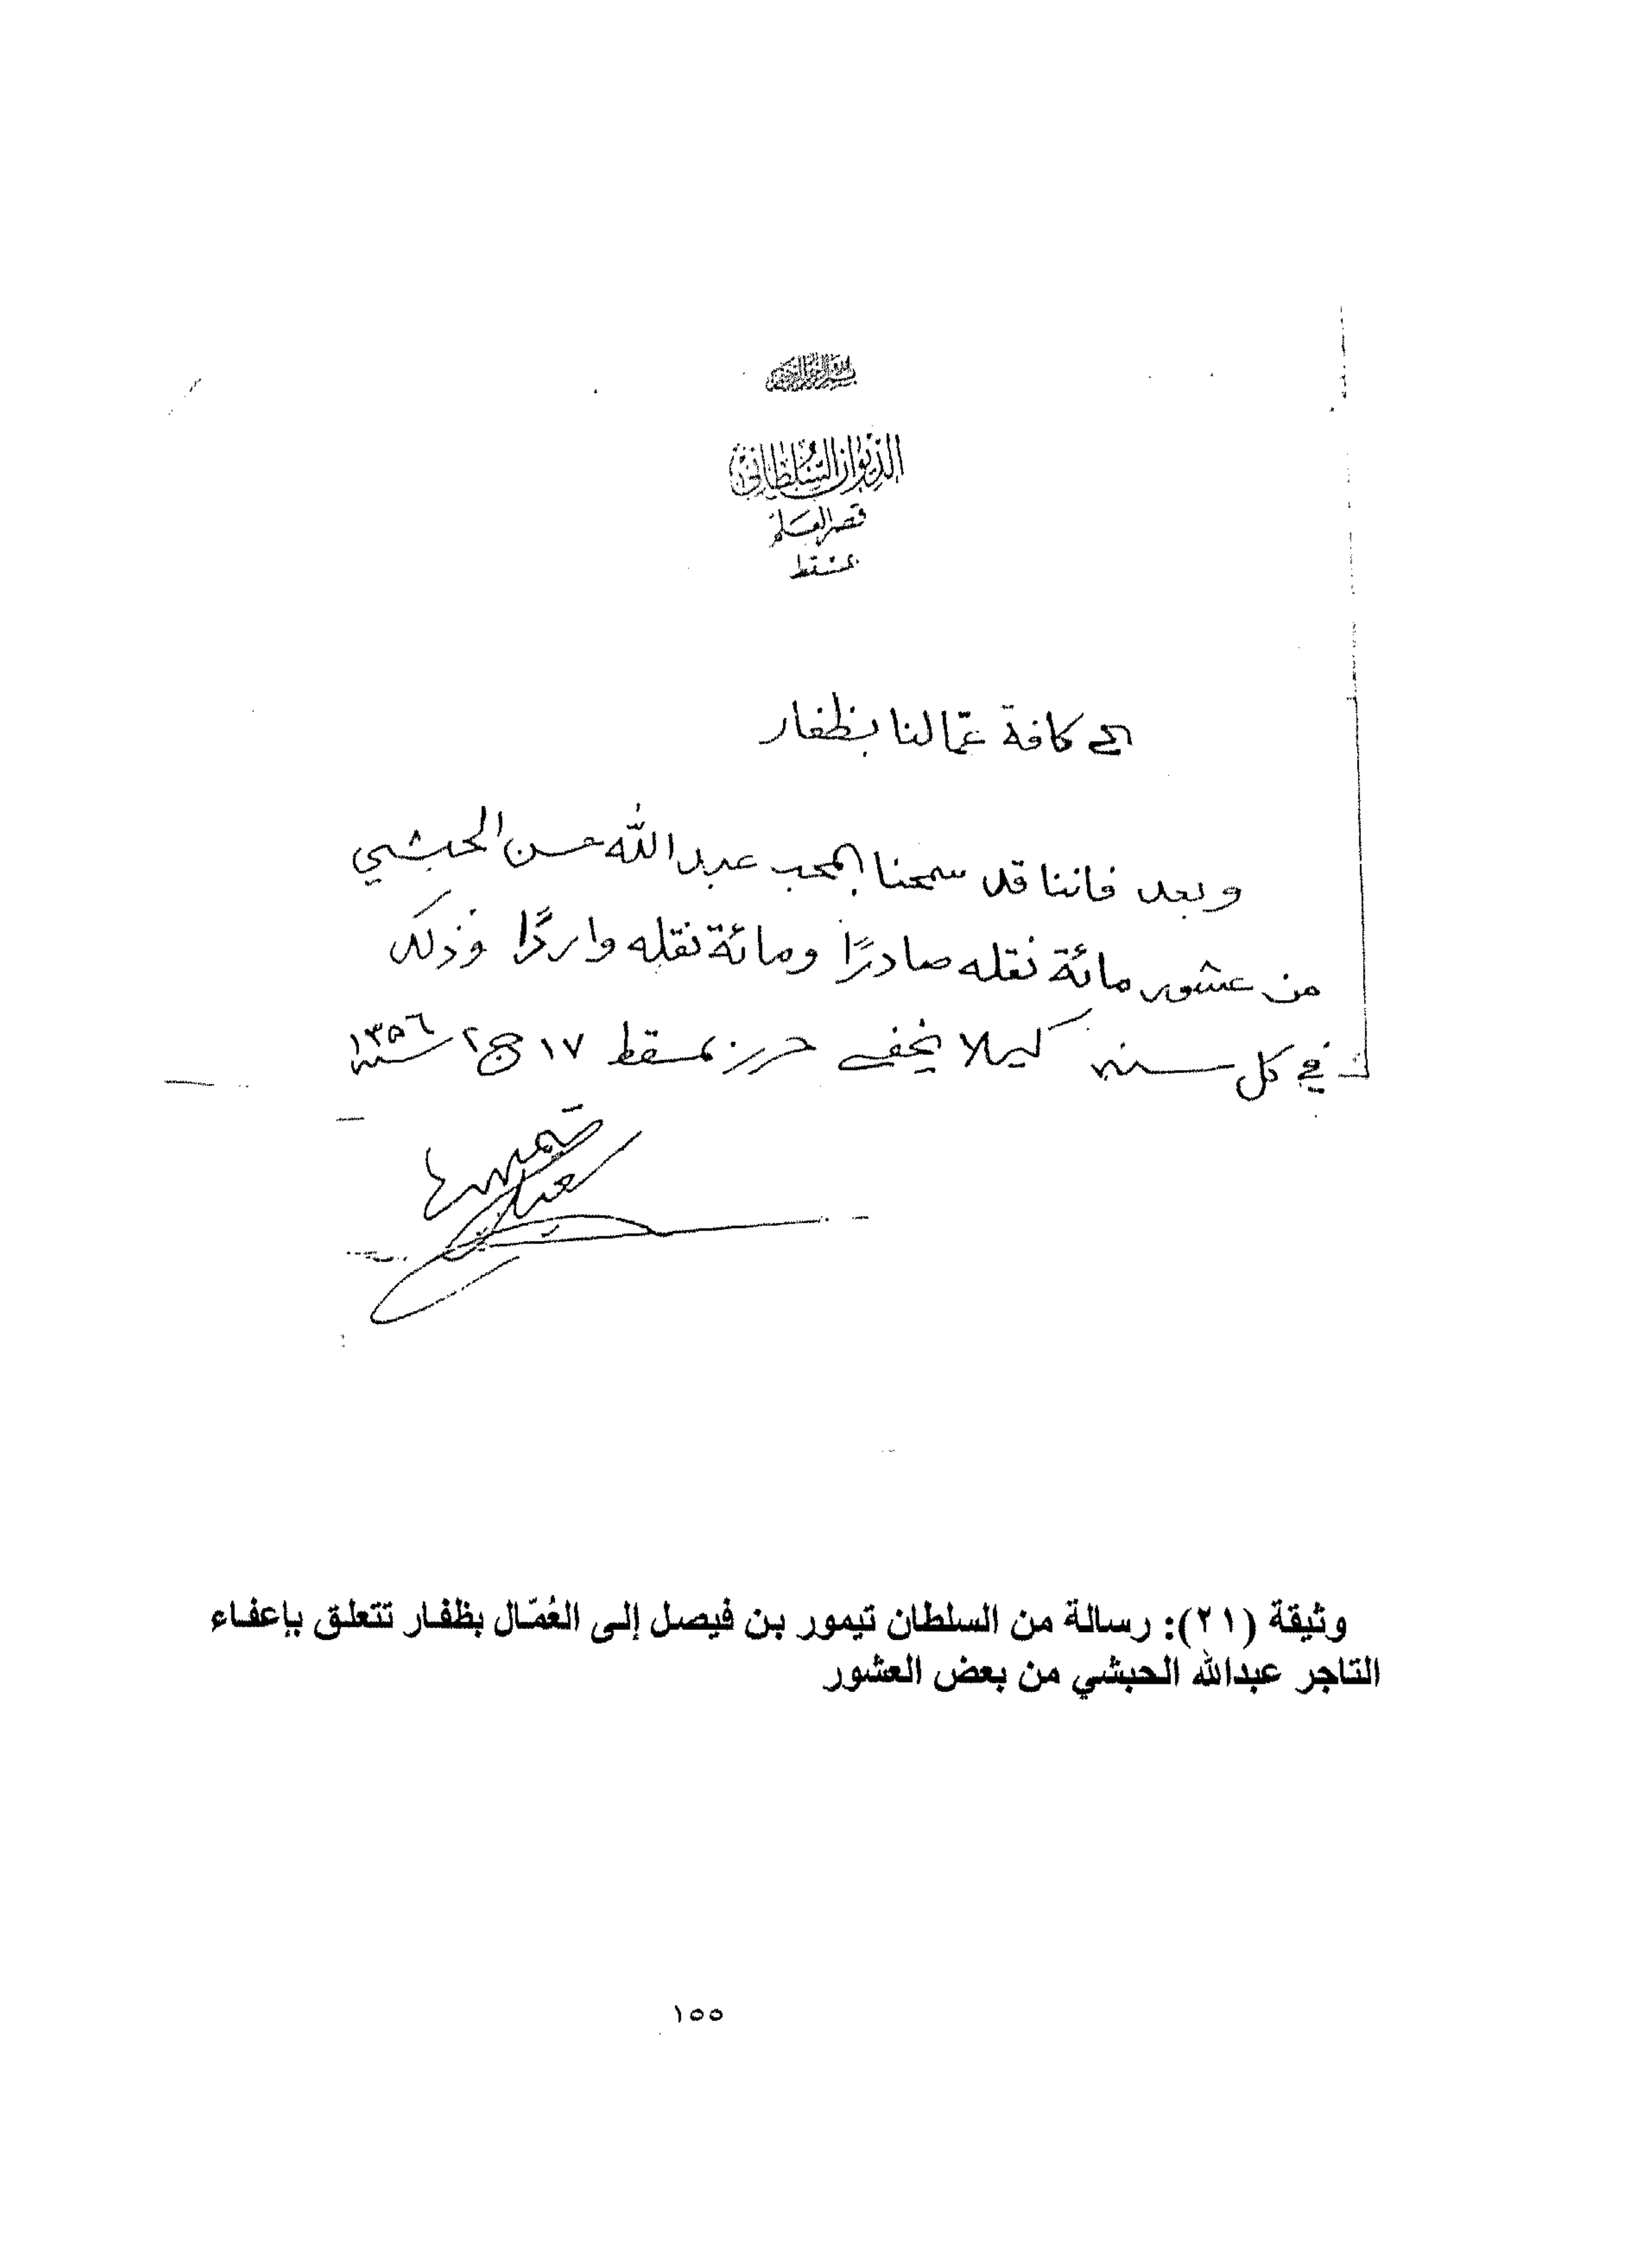 بسم الله الرحمن الرحيم
الديوان السلطاني
قصر العلم
بمسقط
الى كافة عمّالنا بظفار
وبعد فاننا قد سمحنا للمحب عبدالله حسن الحبشي
من عشور مائة نقله صادرًا ومائة نقله واردًا وذلك
في كل سنه كيلا يخفى حرر بمسقط ١٧ ج ٢ سنة ١٣٥٦
سعيد بن تيمور
وثيقة (٢١): رسالة من السلطان تيمور بن فيصل إلى العُمّال بظفار تتعلق بإعفاء
التاجر عبدالله الحبشي من بعض العشور
١٥٥